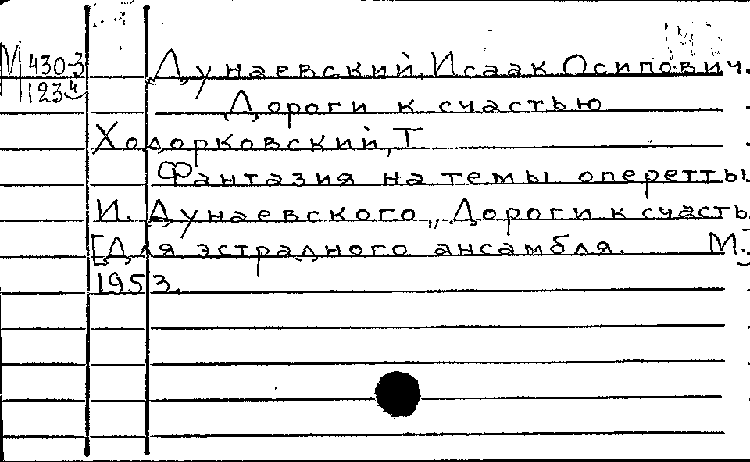 М 430-3
1234
Дунаевский, Исаак Осипович.
Дороги к счастью
Ходорковский, Т
Фантазия на темы оперетты
И. Дунаевского „Дороги к счасть
[Для эстрадного ансамбля. М.,
1953.